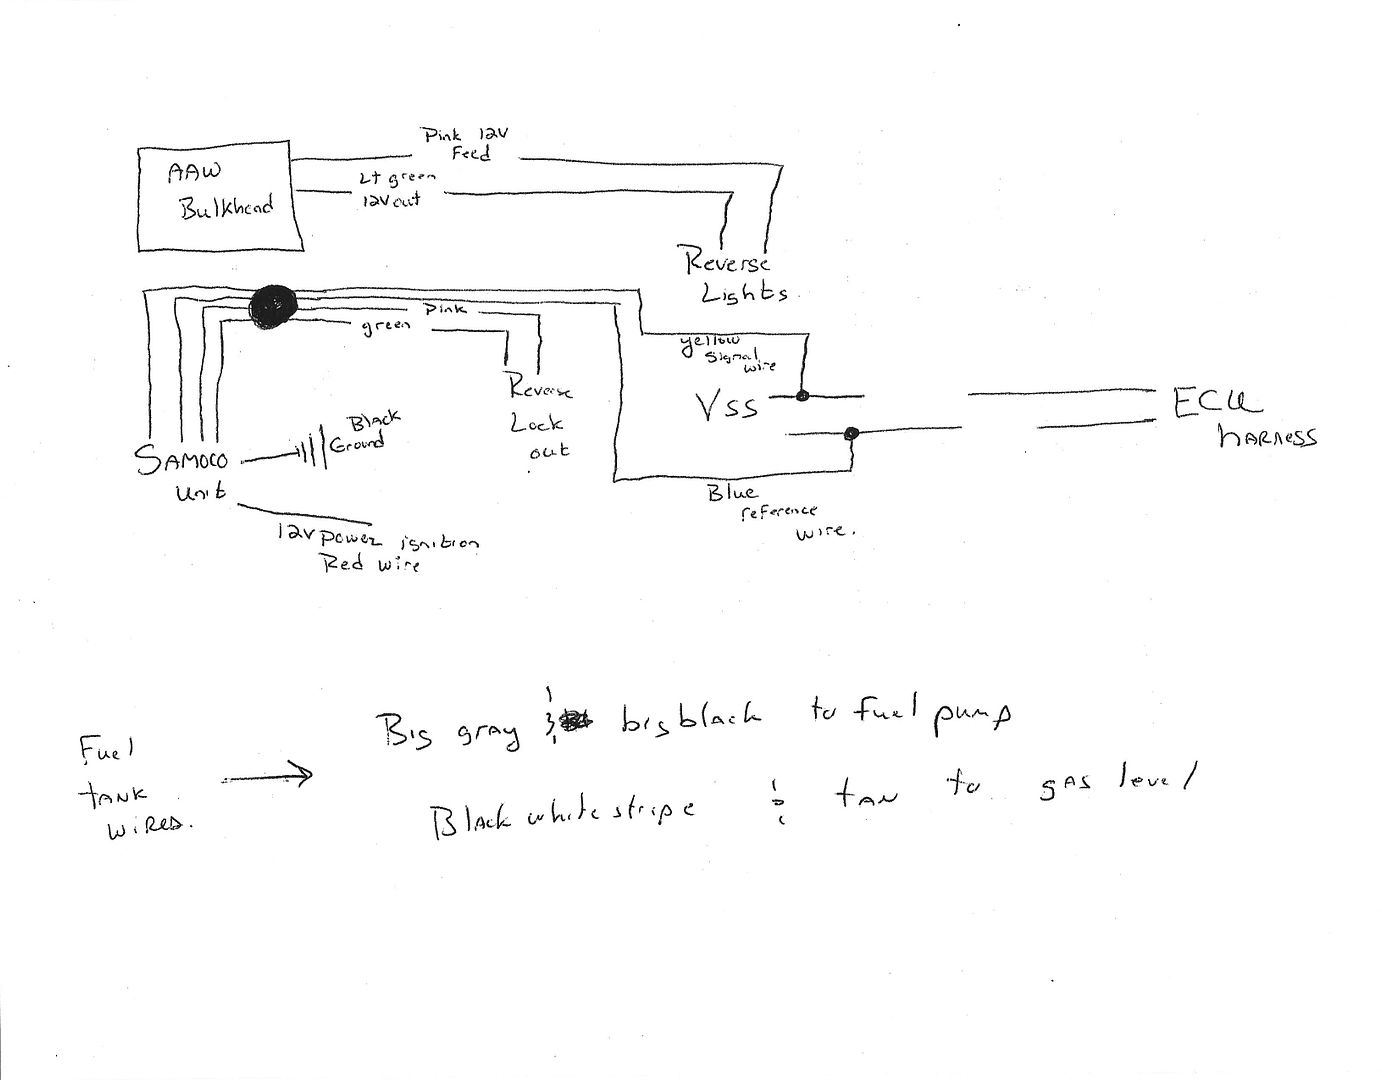 Pink 12V
Feed
AAW
Bulkhead
Lt green
12V out
Reverse
Lights
Pink
green
yellow
Signal
wire
Reverse
Lock
out
VSS
ECU
HARNESS
Black
Ground
SAMOCO
Unit
Blue
reference
wire.
12V power ignition
Red wire
Fuel
TANK
WIRES.
Big gray & big black to fuel pump
Black white stripe & tan to gas level